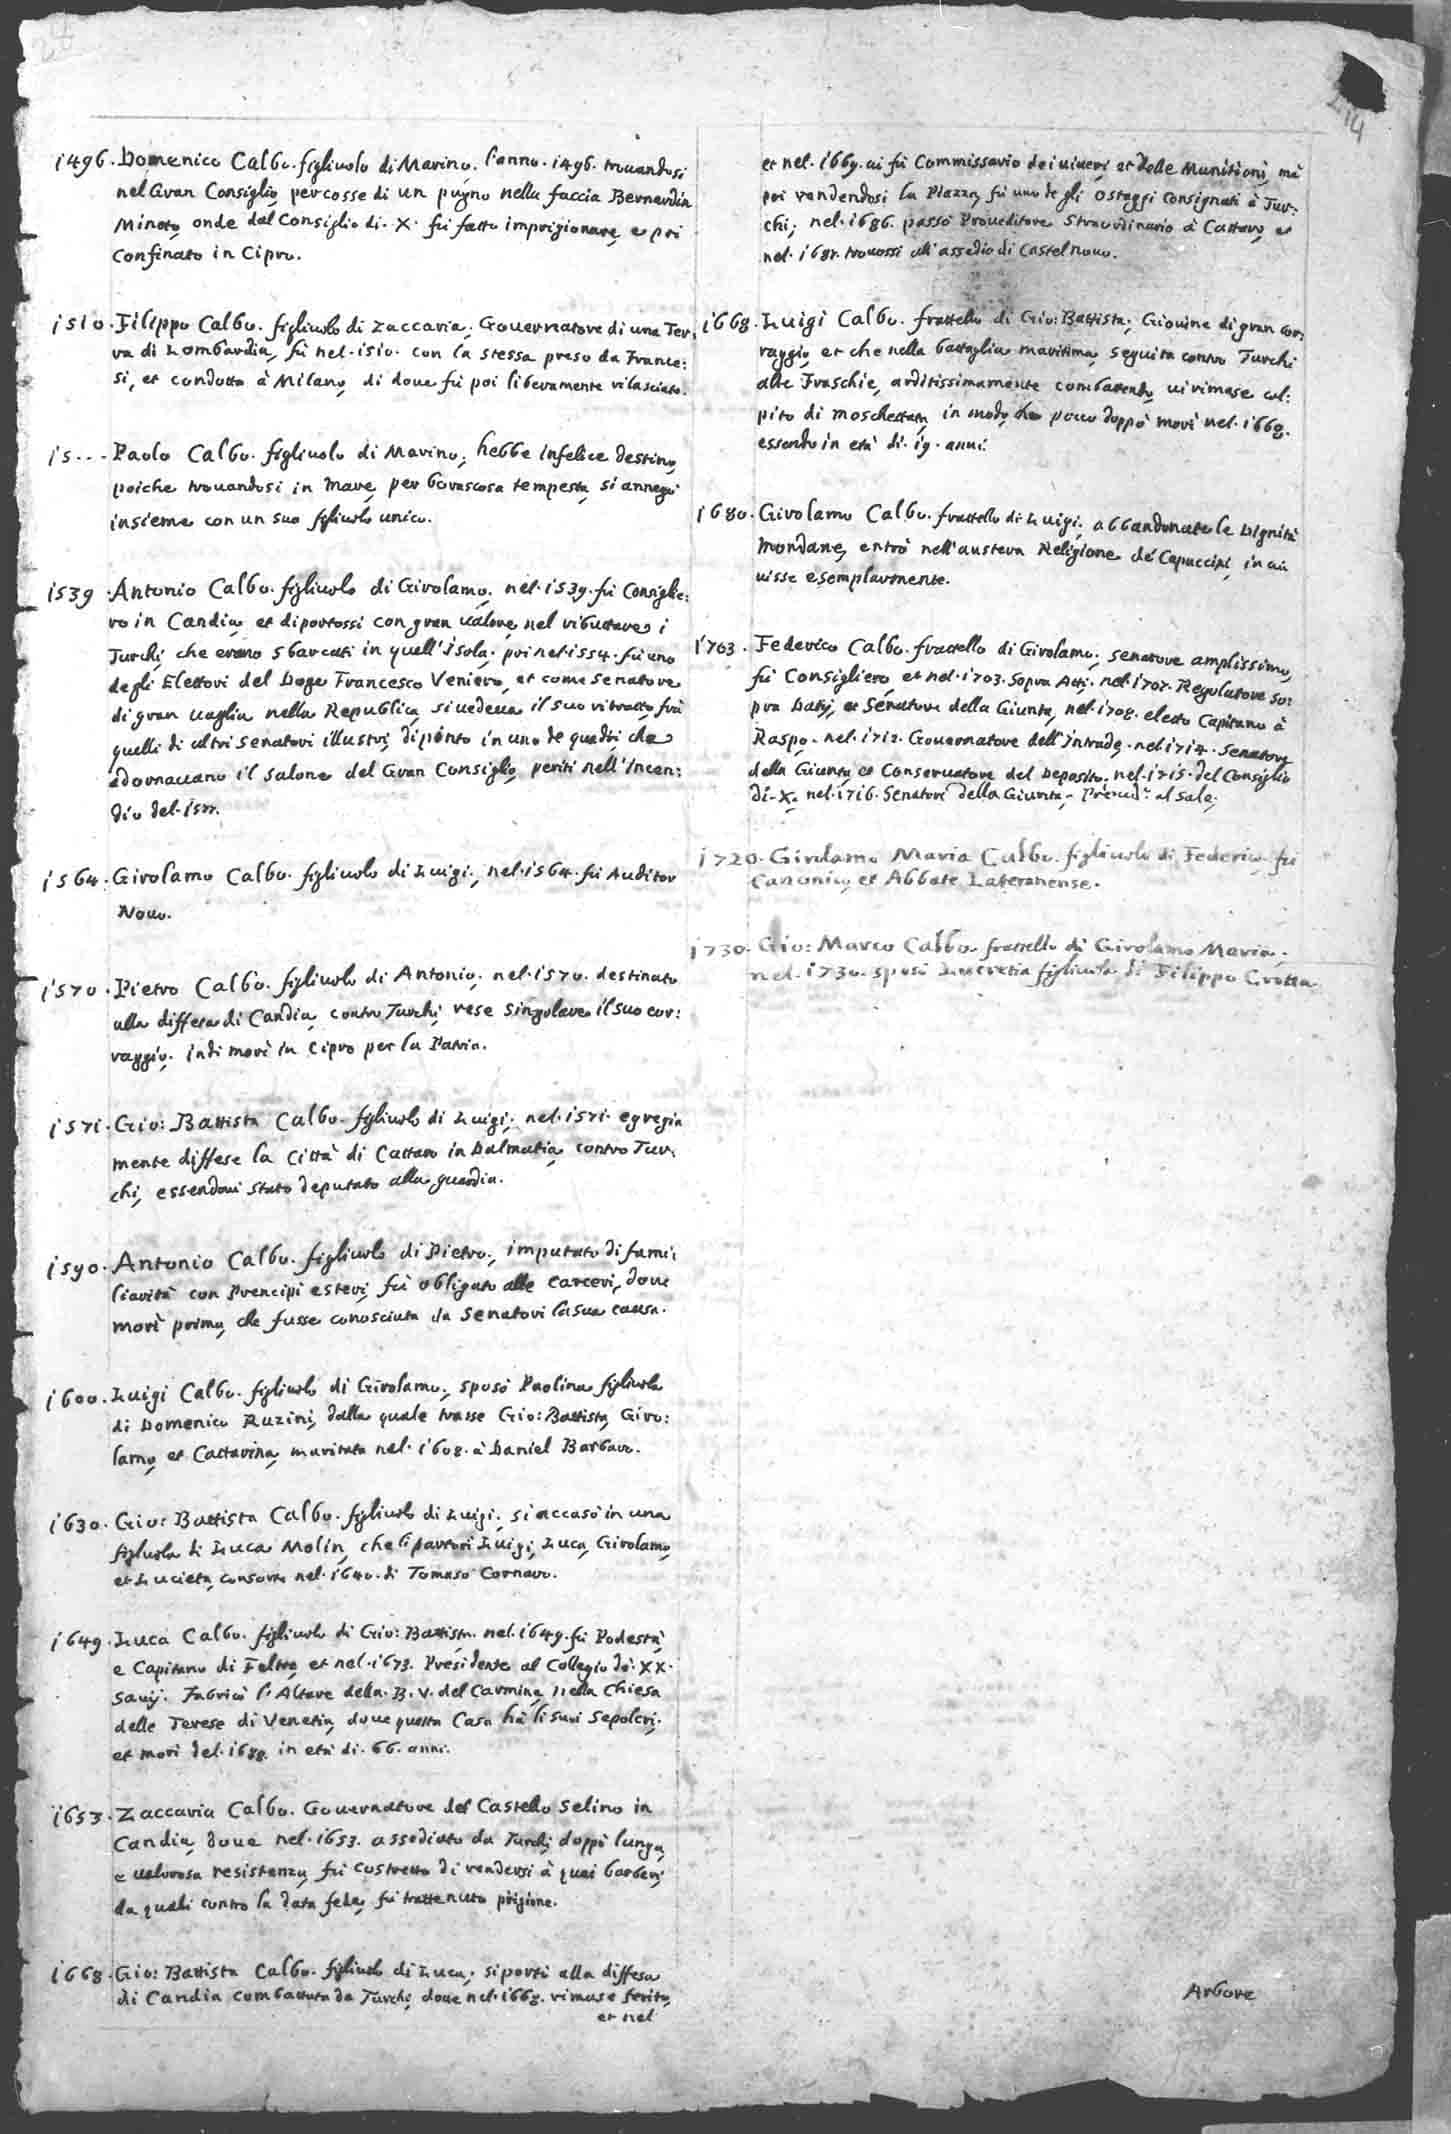 14
1496. Domenico Calbo. figliuolo di Marino. l'anno. 1496. trouandosi
nel Gran Consiglio, percosse di un pugno nella faccia Bernardin
Minoto, onde dal Consiglio di. X. fù fatto imprigionare, e poi
confinato in Cipro.
1510. Filippo Calbo. figliuolo di Zaccaria; Gouernatore di una Ter:
ra di Lombardia, fù nel. 1510. con la stessa preso da France:
si, et condotto à Milano, di doue fù poi liberamente rilasciato.
15... Paolo Calbo. figliuolo di Marino; hebbe infelice destino,
poiche trouandosi in Mare, per borascosa tempesta, si annegò
insieme con un suo figliuolo unico.
1539. Antonio Calbo. figliuolo di Girolamo; nel. 1539. fù Consiglie:
ro in Candia, et diportossi con gran ualore, nel ributtare i
Turchi, che erano sbarcati in quell'Isola. poi nel. 1554. fù uno
degli Elettori del Doge Francesco Veniero, et come Senatore
di gran uaglia nella Republica, si uedeua il suo ritratto, frà
quelli di altri Senatori illustri, dipinto in uno de quadri, che
adornauano il salone del Gran Consiglio, periti nell'Incen:
dio del. 1577.
1564. Girolamo Calbo. figliuolo di Luigi; nel. 1564. fù Auditor
Nouo.
1570. Pietro Calbo. figliuolo di Antonio; nel. 1570. destinato
alla diffesa di Candia, contro Turchi, rese singolare il suo cor:
raggio; indi morì in Cipro per la Patria.
1571. Gio: Battista Calbo. figliuolo di Luigi; nel. 1571. egregia
mente diffese la Città di Cattaro in Dalmatia, contro Tur:
chi, essendoui stato deputato alla guardia.
1590. Antonio Calbo. figliuolo di Pietro; imputato di fami:
liarità con Prencipi esteri, fù obligato alle carceri, doue
morì prima, che fusse conosciuta da Senatori la sua causa.
1600. Luigi Calbo. figliuolo di Girolamo; sposò Paolina figliuola
di Domenico Ruzini, dalla quale trasse Gio: Battista, Giro:
lamo, et Cattarina, maritata nel. 1608. à Daniel Barbaro.
1630. Gio: Battista Calbo. figliuolo di Luigi; si accasò in una
figliuola di Luca Molin, che li partorì Luigi, Luca, Girolamo,
et Lucieta, consorte nel. 1640. di Tomaso Cornaro.
1649. Luca Calbo. figliuolo di Gio: Battista. nel. 1649. fù Podestà,
e Capitano di Feltre, et nel. 1673. Presidente al Collegio de. XX.
Sauij. Fabricò l'Altare della. B. V. del Carmine, nella Chiesa
delle Terese di Venetia, doue questa Casa hà li suoi Sepolcri;
et morì del. 1688. in età di. 66. anni.
1653. Zaccaria Calbo. Gouernatore del Castello Selino in
Candia, doue nel. 1653. assediato da Turchi, doppò lunga,
e ualorosa resistenza, fù costretto di rendersi à quei barbari,
da quali contro la data fede, fù trattenuto prigione.
1668. Gio: Battista Calbo. figliuolo di Luca; si portò alla diffesa
di Candia combattuta da Turchi, doue nel. 1668. rimase ferito,
et nel
et nel. 1669. ui fù Commissario dei uiueri, et delle Munitioni, mà
poi rendendosi la Piazza, fù uno de gli ostaggi consignati à Tur:
chi; nel. 1686. passò Proueditore Straordinario à Cattaro, et
nel. 1687. trouossi all'assedio di Castel Nouo.
1668. Luigi Calbo. frattello di Gio: Battista; Giouine di gran cor:
raggio, et che nella battaglia maritima, seguita contro Turchi
alle Fraschie, arditissimamente combattendo, ui rimase col:
pito di moschettata, in modo, che poco doppò morì nel. 1668.
essendo in età di. 19. anni.
1680. Girolamo Calbo. frattello di Luigi; abbandonate le Dignità
Mondane, entrò nell'austera Religione de' Capuccini, in cui
uisse esemplarmente.
1703. Federico Calbo. frattello di Girolamo; Senatore amplissimo,
fù Consigliero, et nel. 1703. Sopra Atti; nel. 1707. Regolatore So:
pra Datij, et Senatore della Giunta, nel. 1708. eletto Capitano à
Raspo. nel. 1712. Gouernatore dell'Intrade, nel 1714. Senatore
della Giunta, et Conseruatore del Deposito. nel. 1715. del Consiglio
di. X. nel. 1716. Senatore della Giunta, Proued.r al Sale;
1720. Girolamo Maria Calbo. figliuolo di Federico, fù
Canonico, et Abbate Lateranense.
1730. Gio: Marco Calbo. frattello di Girolamo Maria.
nel. 1730. sposò Lucretia figliuola di Filippo Crotta
Arbore